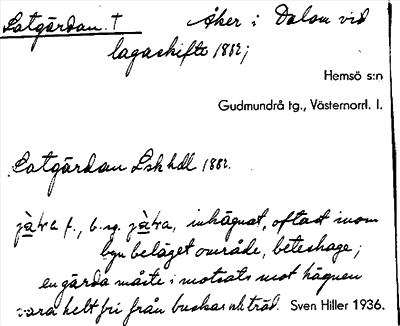 Satgärdan. † Åker i Dalom vid
lagaskifte 1882;
Hemsö s:n
Gudmundrå tg., Västernorrl. l.
Satgärdan Lskhdl 1882.
jæ̀ra f., b. sg. jæ̀ra, inhägnat, oftast inom
byn beläget område, beteshage;
en gärda måste i motsats mot hägnen
vara helt fri från buskar och träd. Sven Hiller 1936.